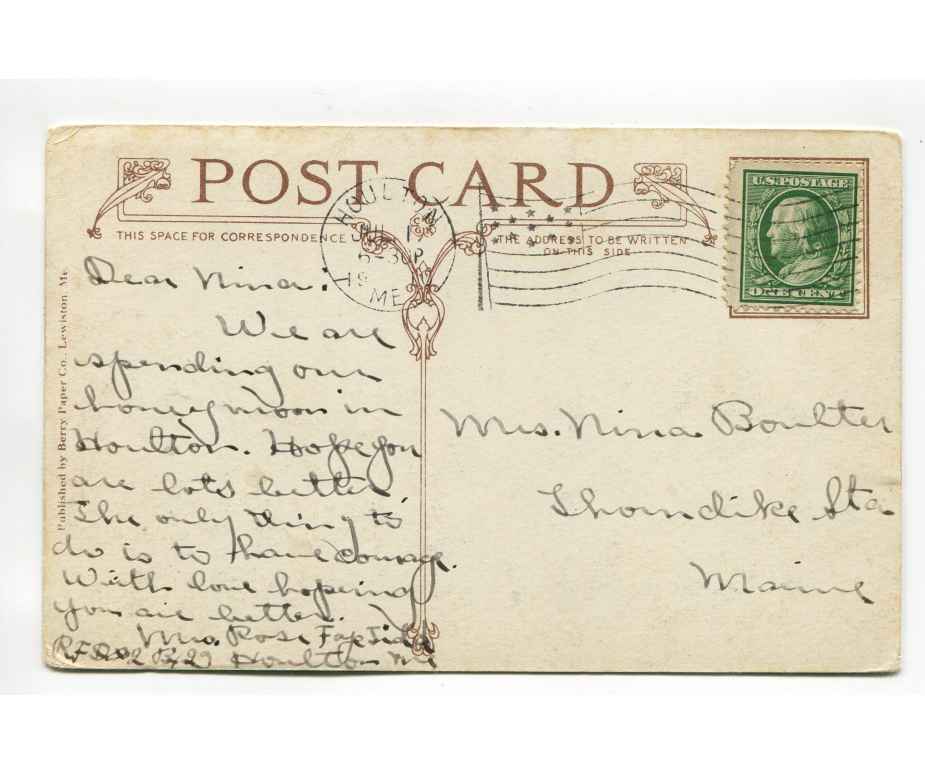 POST CARD
THIS SPACE FOR CORRESPONDENCE
THE ADDRESS TO BE WRITTEN
ON THIS SIDE
HOULTON
ME.
U.S. POSTAGE
ONE CENT
Published by Berry Paper Co., Lewiston, Me
Dear Nina:
We are
spending our
honeymoon in
Houlton. Hope you
are lots better.
The only thing to
do is to have courage.
With love hopeing
you are better.
Mrs. Rose
Houlton Me
Mrs. Nina Boulter
Thorndike Sta
Maine